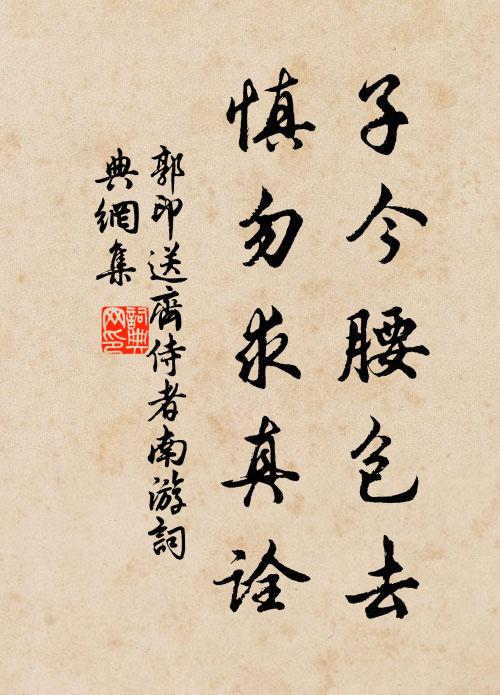 子今腰包去
慎勿求真詮
郭印送齊侍者南游詞
典網集
詞典
网印